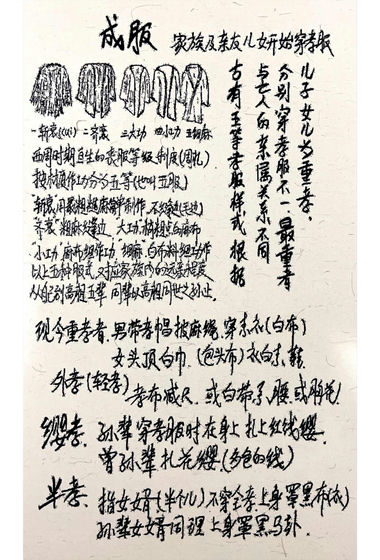 成服 家族及亲友儿女开始穿孝服
一斩衰(cuī) 二齐衰 三大功 四小功 五缌麻
西周时期且生的丧服等级制度(周礼)
按材质作工分为五等(也叫五服)
斩衰用最粗粗麻布制作,不缝边(毛边)
齐衰 粗麻缝边 大功 稍粗点的麻布
小功 麻布细作工 缌麻 白布料细工作
以上五种服式,对应家族内的远亲程度
从自己到高祖五辈 同辈从高祖同世之孙止
古有五等孝服样式 根据
与亡人的亲属关系不同
分别穿孝服不一 最重者
儿子女儿为重孝,
现今重孝者,男带孝帽披麻绳,穿衣(白布)
女头顶白巾(包头布)衣白衣鞋
外孝(轻孝)孝布减尺 或白带系腰 或胸花
缨孝,孙辈穿孝服时在身上扎上红线缨.
曾孙辈扎花缨(多色的线)
半孝,指女婿(半个儿)不穿全孝上身罩黑布(衣)
孙辈女婿同理上身罩黑马卦.